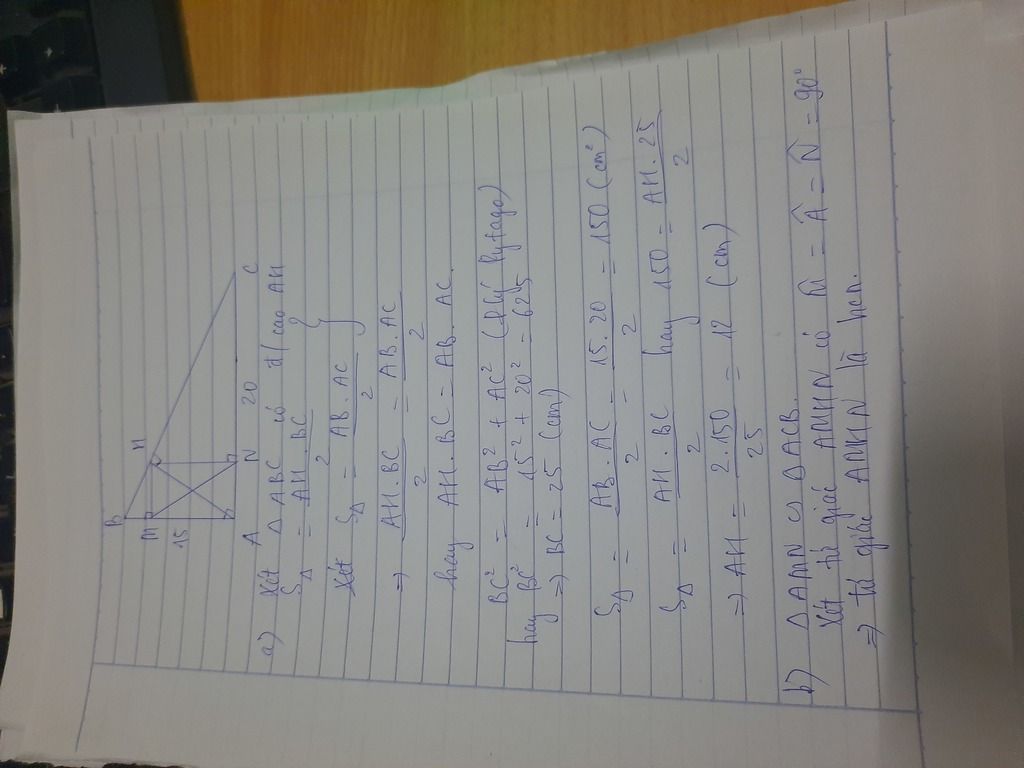 B
M
H
15
A
N
20
C
a) Xét Δ ABC có đ/cao AH
S_Δ = AH.BC / 2
Xét S_Δ = AB.AC / 2
=> AH.BC / 2 = AB.AC / 2
hay AH.BC = AB.AC.
BC² = AB² + AC² (Pytago)
hay BC² = 15² + 20² = 625
=> BC = 25 (cm)
S_Δ = AB.AC / 2 = 15.20 / 2 = 150 (cm²)
S_Δ = AH.BC / 2 hay 150 = AH.25 / 2
=> AH = 2.150 / 25 = 12 (cm)
b) Δ AMN ∽ Δ ACB.
Xét tứ giác AMHN có M̂ = Â = N̂ = 90°
=> tứ giác AMHN là hcn.